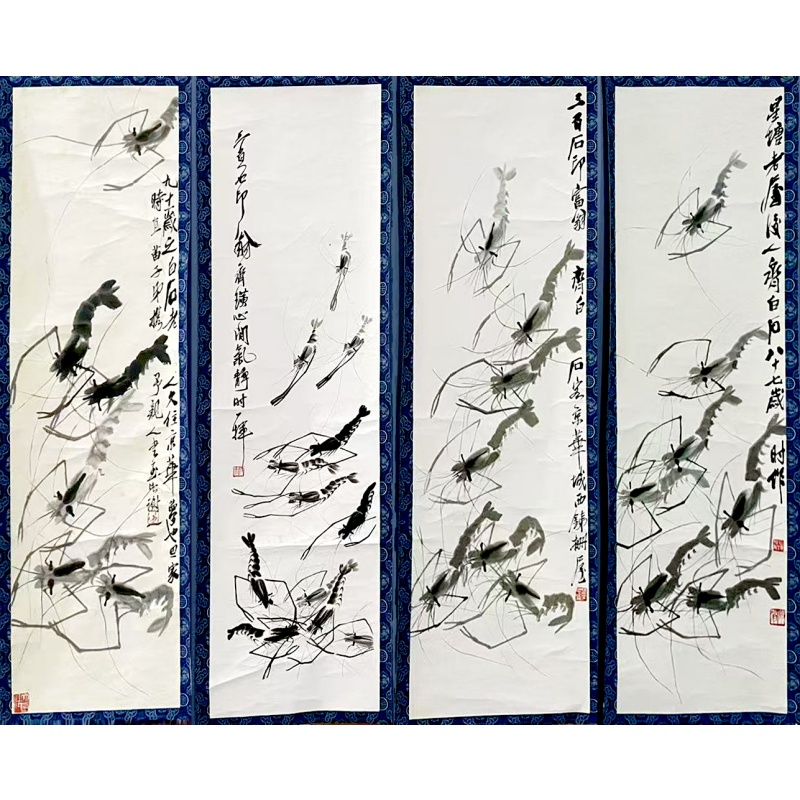 星塘老屋後人齊白石八十七歲
时作
三百石印富翁
齊白
石客京華城西鐵柵屋
三百石印
齊璜心閒氣靜时一揮
九十歲之白石老
人久住京華夢也思家
時直苗子